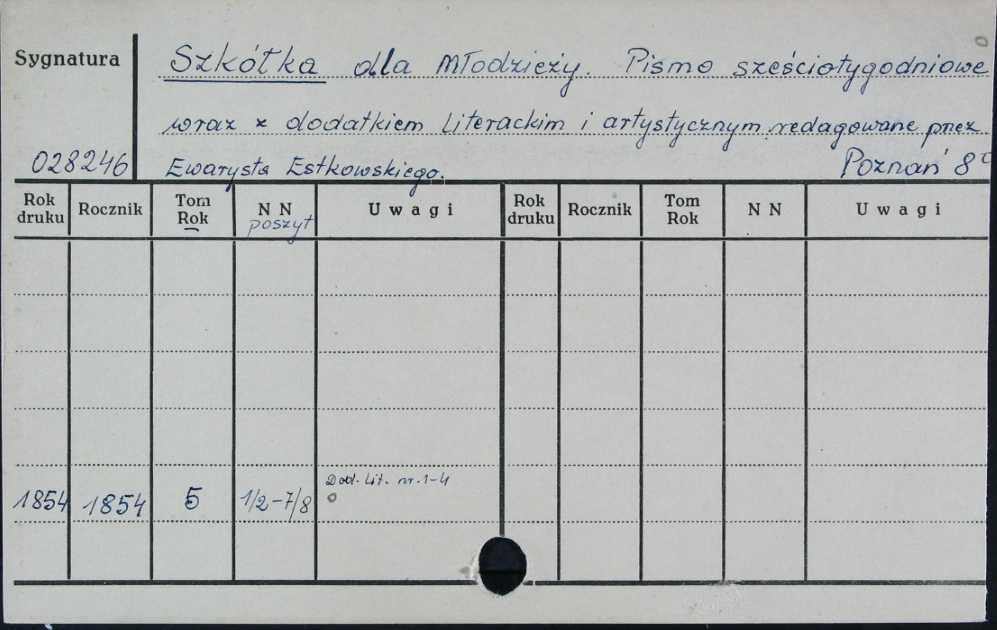 Sygnatura
Szkółka dla Młodzieży. Pismo sześciotygodniowe
wraz z dodatkiem literackim i artystycznym redagowane przez
028246 Ewarysta Estkowskiego. Poznań 8°
Rok druku Rocznik Tom Rok NN poszyt Uwagi Rok druku Rocznik Tom Rok NN Uwagi
Dod. Lit. nr. 1-4
1854 1854 5 1/2-7/8